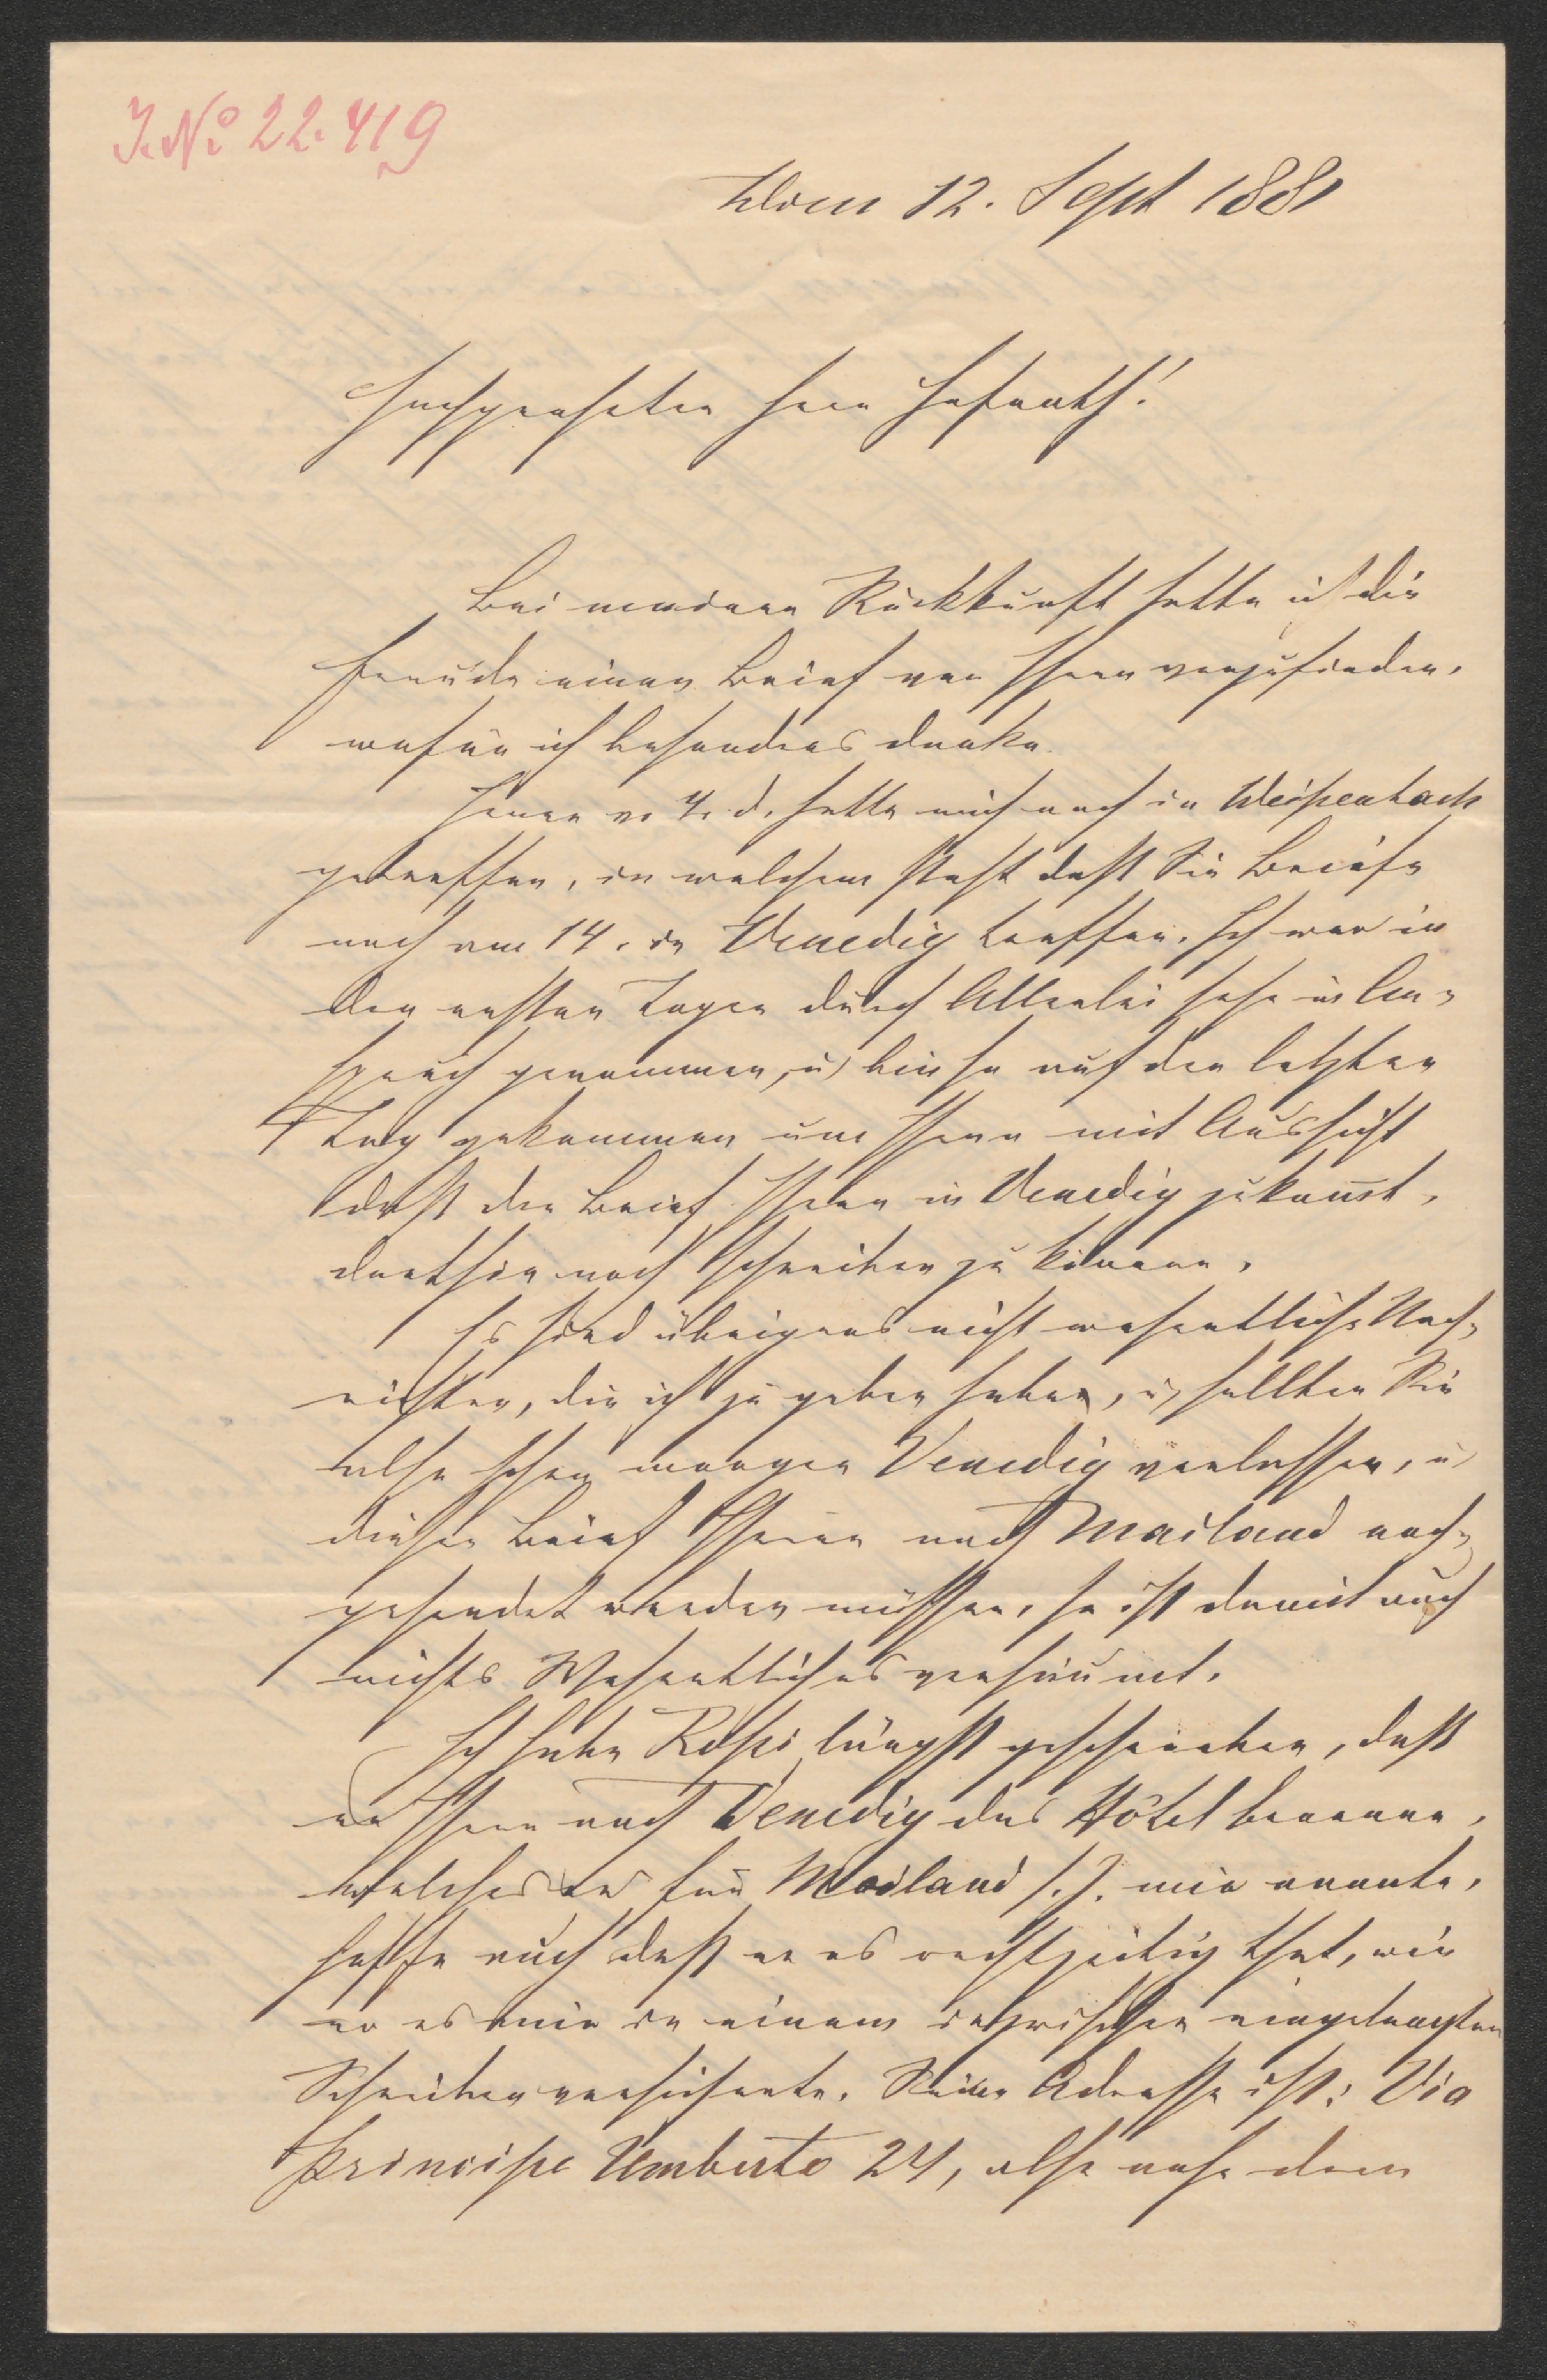 J. No 22.419
Wien 12. Sept 1881
Hochgeehrter Herr Hofrath!
Bei meiner Rückkunft hatte ich die
Freude einen Brief von Ihnen vorzufinden,
wofür ich besonders danke.
Jener v. 4. d. hatte mich noch in Weißenbach
getroffen, in welchem steht daß Sie Briefe
noch am 14. in Venedig treffen. Ich war in
den ersten Tagen durch Allerlei sehr in An-
spruch genommen, u bin so auf den letzten
Tag gekommen um Ihnen mit Aussicht
daß der Brief Ihnen in Venedig zukomt,
dorthin noch schreiben zu können.
Es sind übrigens nicht wesentliche Nach-
richten, die ich zu geben habe, u sollten Sie
also schon morgen Venedig verlassen, u
dieser Brief Ihnen nach Mailand nach-
gesendet werden müssen, so ist damit auch
nichts Wesentliches versäumt.
Ich habe Rossi längst geschrieben, daß
er Ihnen nach Venedig das Hôtel benenne,
welches er für Mailand s. Z. mir nannte,
hoffe auch daß er es rechtzeitig that, wie
er es mir in einem inzwischen eingelangten
Schreiben versicherte. Seine Adresse ist: Via
Principe Umberto 24, also nahe dem